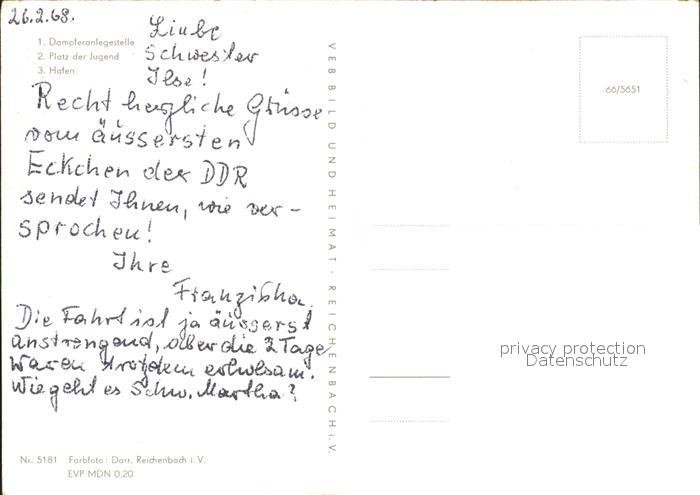 26.2.68.
Liebe
1. Dampferanlegestelle
2. Platz der Jugend
3. Hafen
Schwester
Ilse!
Recht herzliche Grüsse
vom äussersten
Eckchen der DDR
sendet Ihnen, wie ver-
sprochen!
Ihre
Franziska.
Die Fahrt ist ja äusserst
anstrengend, aber die 2 Tage
waren trotzdem erholsam.
Wie geht es Schw. Martha?
Nr. 5181 Farbfoto: Darr, Reichenbach i. V.
EVP MDN 0,20
VEB BILD UND HEIMAT · REICHENBACH i. V.
66/5651
privacy protection
Datenschutz